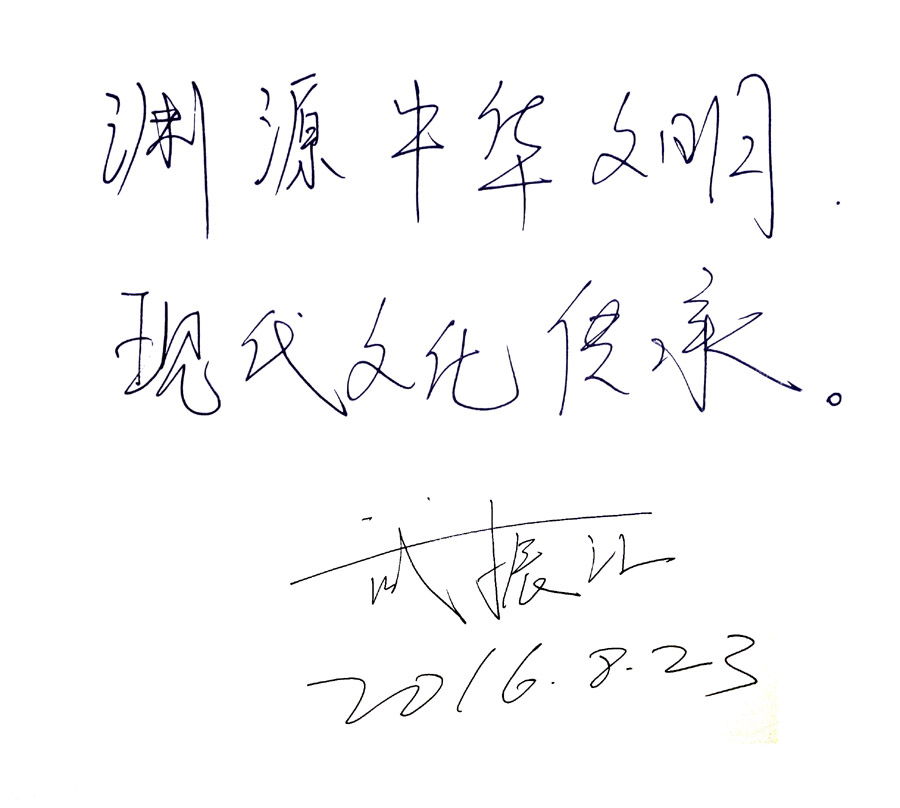 渊源中华文明.
现代文化传承。
武振江
2016.8.23